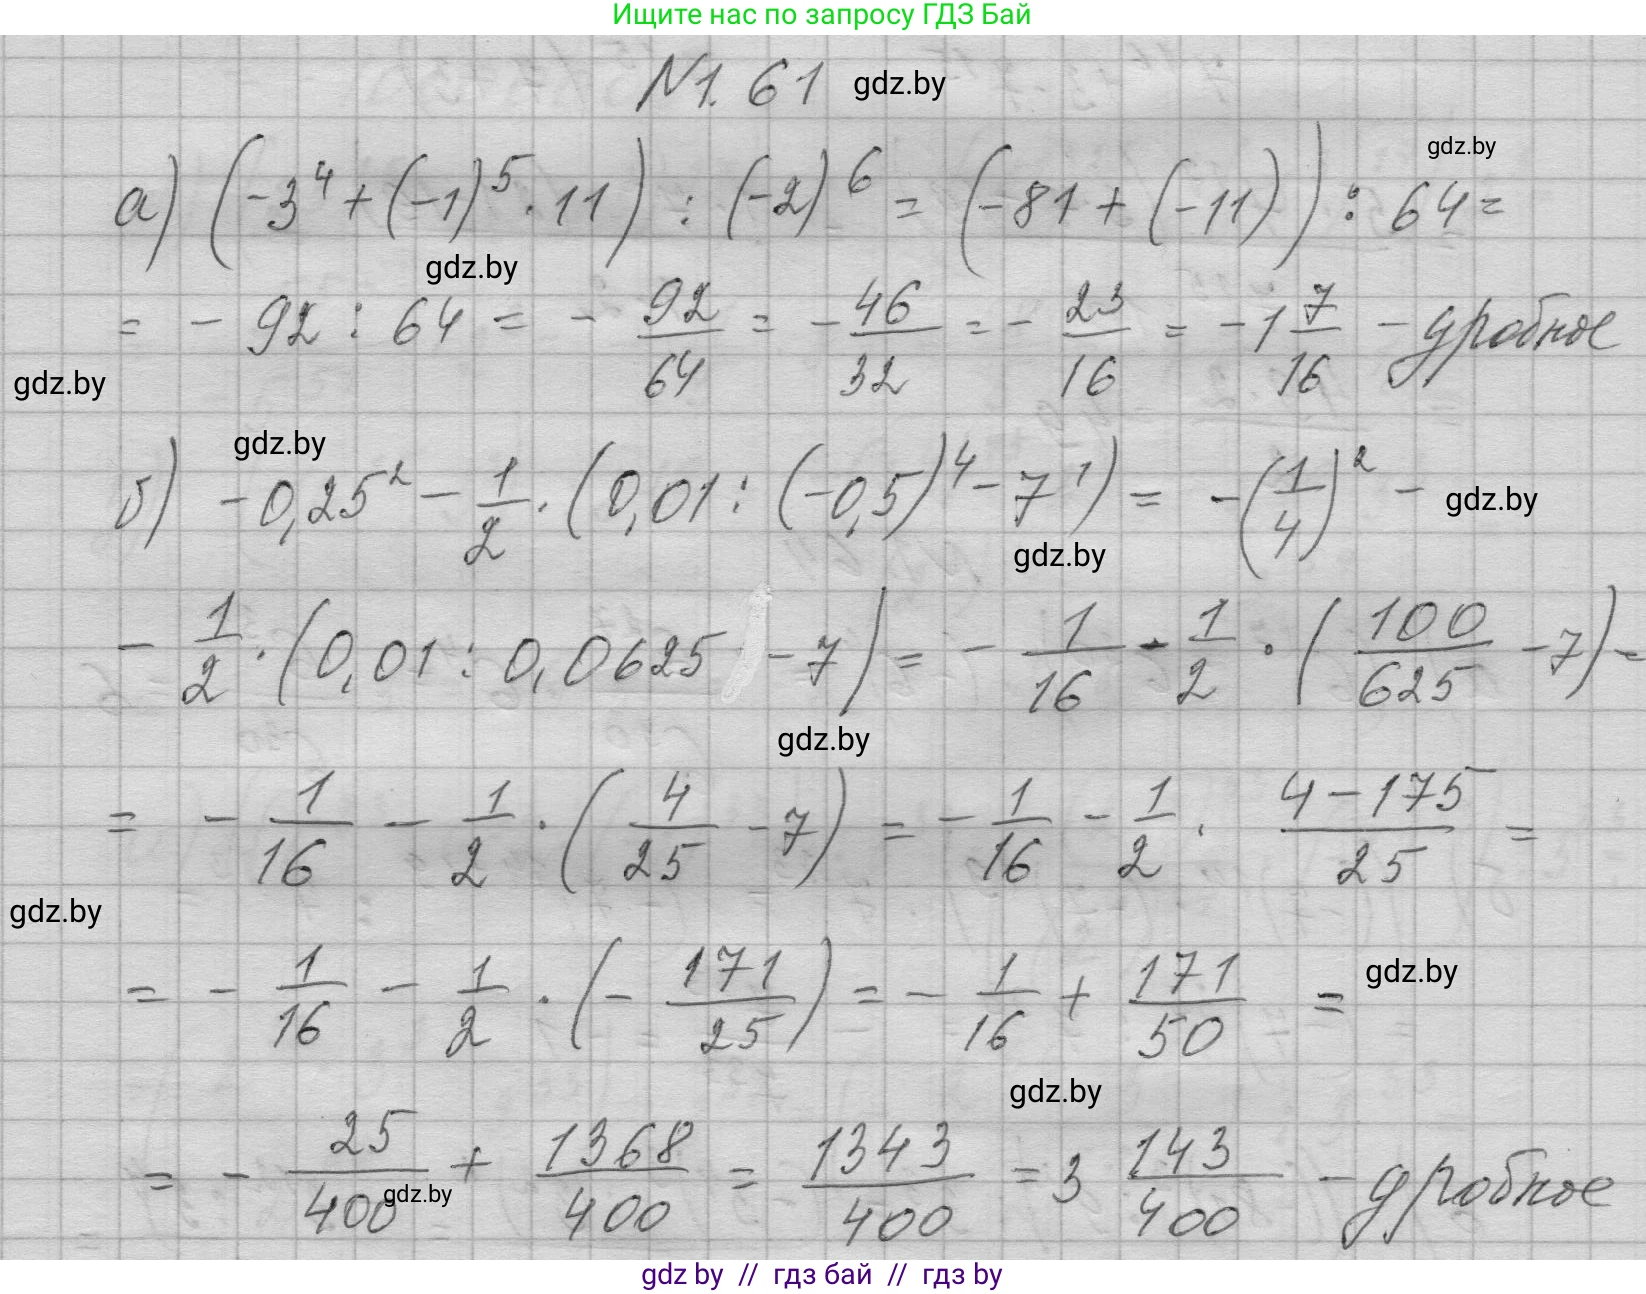 Ищите нас по запросу ГДЗ Бай
№1.61 gdz.by
gdz.by
а) (-3⁴ + (-1)⁵ · 11) : (-2)⁶ = (-81 + (-11)) : 64 =
gdz.by
= - 92 : 64 = - 92/64 = - 46/32 = - 23/16 = -1 7/16 - дробное
gdz.by
gdz.by
б) -0,25² - 1/2 · (0,01 : (-0,5)⁴ - 7¹) = -(1/4)² - gdz.by
gdz.by
- 1/2 · (0,01 : 0,0625 - 7) = - 1/16 - 1/2 · (100/625 - 7) =
gdz.by
= - 1/16 - 1/2 · (4/25 - 7) = - 1/16 - 1/2 · (4-175)/25 =
gdz.by
= - 1/16 - 1/2 · (- 171/25) = - 1/16 + 171/50 = gdz.by
gdz.by
= - 25/400 + 1368/400 = 1343/400 = 3 143/400 - дробное
gdz.by
gdz by // гдз бай // гдз by